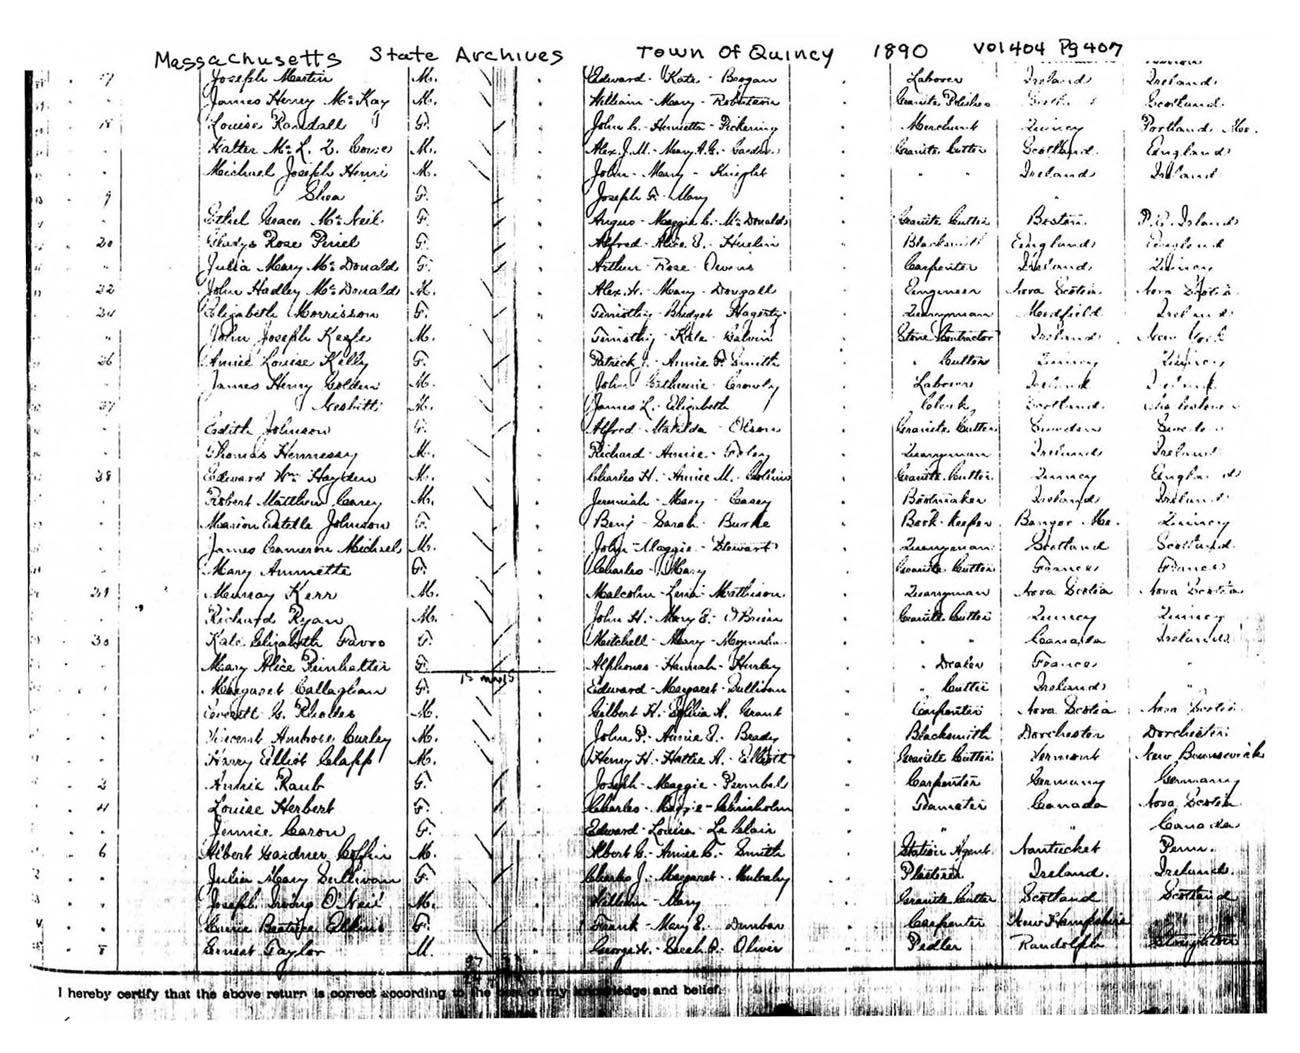 Massachusetts State Archives Town Of Quincy 1890 Vol 404 Pg 407
17 Joseph Martin M. Edward - Kate - Brogan Laborer Ireland Ireland
James Henry McKay M. William - Mary - Robertson Granite Polisher Scotland
18 Louise Randall F. John C. - Henrietta - Pickering Merchant Quincy Portland Me.
Walter Mc L. M. Alex. J. M. - Mary A. G. - Granite Cutter Scotland England
Michael Joseph Henri M. John - Mary - Knight " " Ireland Ireland
Shea F. Joseph F. - Mary
Ethel Grace McNeil F. Angus - Maggie C. - McDonald Granite Cutter Boston P. E. Island
20 Gladys Rose F. Alfred - Alice Blacksmith England England
Julia Mary McDonald F. Arthur - Rose - Owens Carpenter Ireland Quincy
22 John Hadley McDonald M. Alex. H. - Mary - Dougall Engineer Nova Scotia Nova Scotia
24 Elizabeth Morrisson F. Timothy - Bridget - Hagerty Quarryman Medfield Ireland
" John Joseph Keefe M. Timothy - Kate - Galvin Stone Contractor Ireland New York
26 Annie Louise Kelly F. Patrick J. - Annie F. Smith " Cutter Quincy Quincy
James Henry Golden M. John - Catherine - Crowley Laborer Ireland Ireland
27 Nesbitt M. James L. - Elizabeth Clerk Scotland Charlestown
Edith Johnson F. Alfred - Matilda - Olson Granite Cutter Sweden Sweden
Thomas Hennessy M. Richard - Annie - Foley Quarryman Ireland Ireland
28 Edward Wm. Hayden M. Charles H. - Annie M. Granite Cutter Quincy England
Robert Matthew Carey M. Jeremiah - Mary - Casey Bootmaker Ireland Ireland
Marion Estelle Johnson F. Benj - Sarah - Burke Book Keeper Bangor Me. Quincy
James Cameron Michael M. John - Maggie - Stewart Quarryman Scotland Scotland
Mary F. Charles - Mary Granite Cutter France France
29 Murray Kerr M. Malcolm - Lena - Mathison Quarryman Nova Scotia Nova Scotia
Richard Ryan M. John H. - Mary E. - O'Brien Granite Cutter Quincy Quincy
30 Kate Elizabeth Favro F. Mitchell - Mary - " " Canada Ireland
Mary Alice F. Alphonse - Hannah - Hurley " Dealer France "
Margaret Callaghan F. Edward - Margaret - Sullivan " Cutter Ireland "
Everett G. Rhodes M. Gilbert H. - Sophia A. Grant Carpenter Nova Scotia Nova Scotia
Vincent Ambrose Curley M. John P. - Annie E. - Brady Blacksmith Dorchester Dorchester
Harry Elliot Clapp M. Henry H. - Hattie A. - Elliott Granite Cutter Vermont New Brunswick
2 Annie Raub F. Joseph - Maggie - Carpenter Germany Germany
4 Louise Herbert F. Charles - Maggie - Chinholm Teamster Canada Nova Scotia
Jennie Caron F. Edward - Louisa - LeClair " " Canada
6 Albert Gardner Coffin M. Albert C. - Annie C. - Smith Station Agent Nantucket Penn.
Julia Mary Sullivan F. Charles J. - Margaret - Mulcahy Plasterer Ireland. Ireland.
Joseph Irving O'Neil M. William - Mary Granite Cutter Scotland Scotland
Beatrice Elkins F. Frank - Mary E. - Dunbar Carpenter New Hampshire
8 Ernest Taylor M. George W. - Sarah P. - Oliver Pedler Randolph Stoughton
I hereby certify that the above return is correct according to the best of my knowledge and belief.